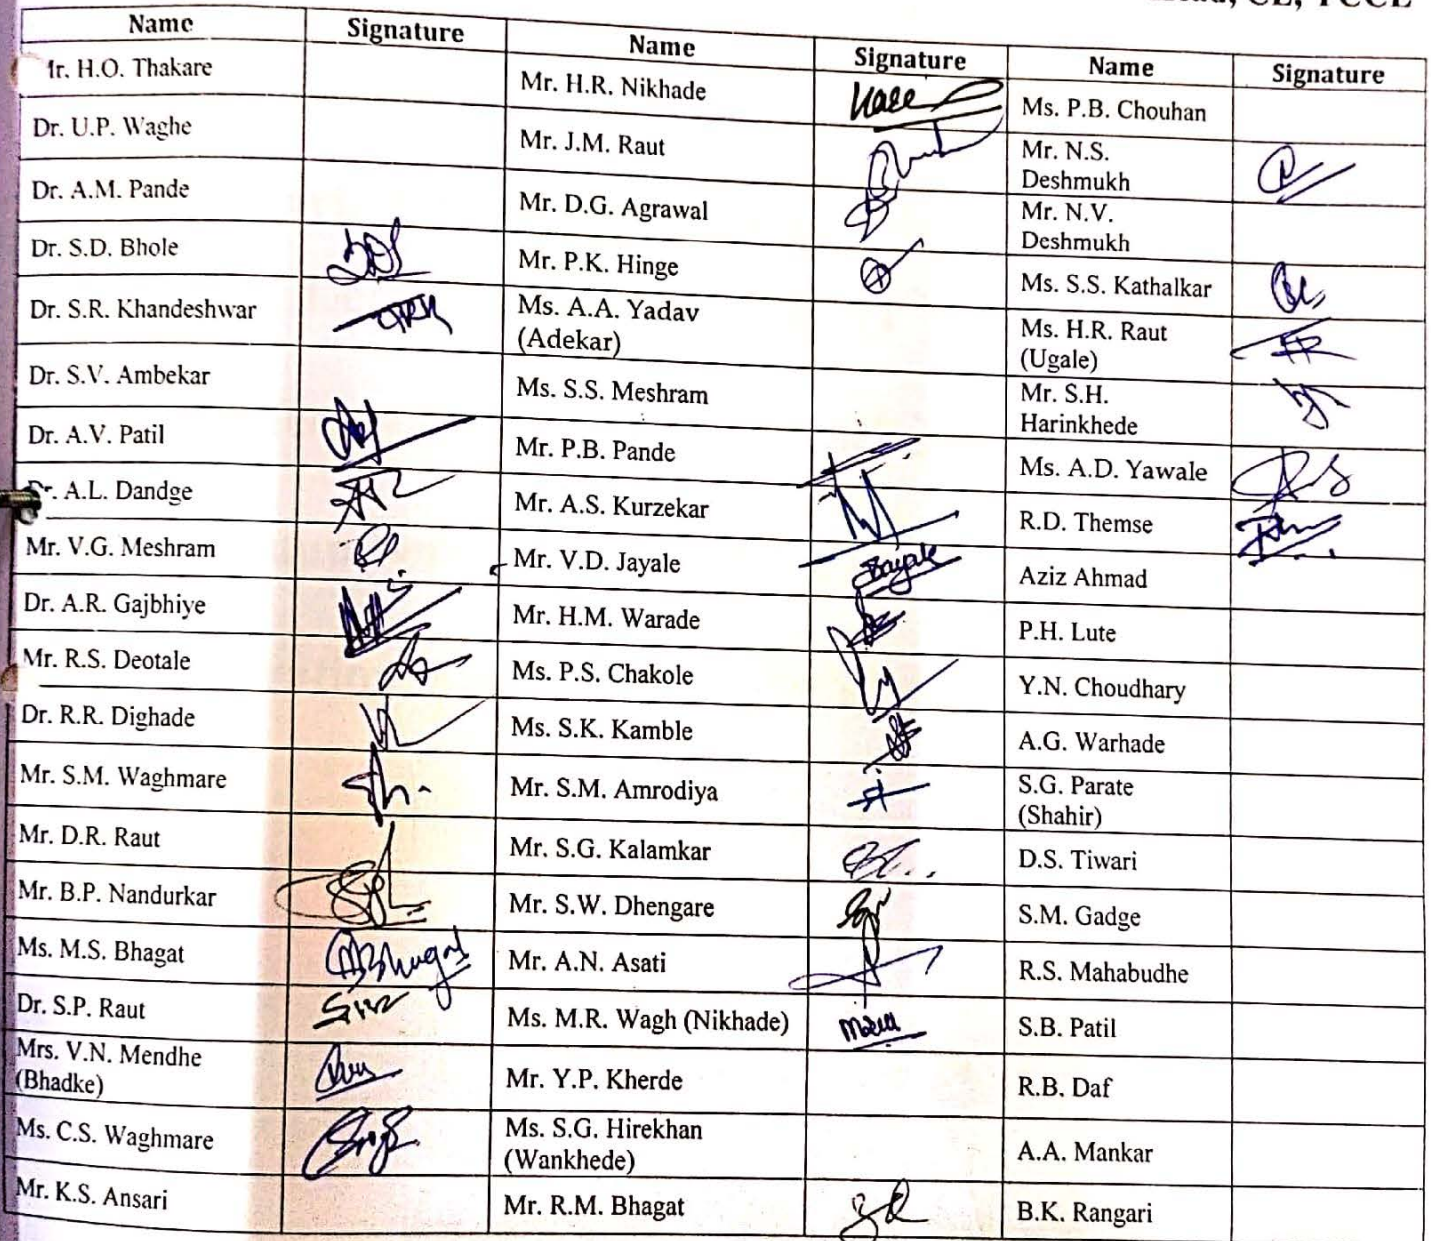 CE, YCCE
Name Signature Name Signature Name Signature
Mr. H.O. Thakare Mr. H.R. Nikhade Ms. P.B. Chouhan
Dr. U.P. Waghe Mr. J.M. Raut Mr. N.S.
Deshmukh
Dr. A.M. Pande Mr. D.G. Agrawal Mr. N.V.
Deshmukh
Dr. S.D. Bhole Mr. P.K. Hinge Ms. S.S. Kathalkar
Dr. S.R. Khandeshwar Ms. A.A. Yadav Ms. H.R. Raut
(Adekar) (Ugale)
Dr. S.V. Ambekar Ms. S.S. Meshram Mr. S.H.
Harinkhede
Dr. A.V. Patil Mr. P.B. Pande Ms. A.D. Yawale
Dr. A.L. Dandge Mr. A.S. Kurzekar R.D. Themse
Mr. V.G. Meshram Mr. V.D. Jayale Aziz Ahmad
Dr. A.R. Gajbhiye Mr. H.M. Warade P.H. Lute
Mr. R.S. Deotale Ms. P.S. Chakole Y.N. Choudhary
Dr. R.R. Dighade Ms. S.K. Kamble A.G. Warhade
Mr. S.M. Waghmare Mr. S.M. Amrodiya S.G. Parate
(Shahir)
Mr. D.R. Raut Mr. S.G. Kalamkar D.S. Tiwari
Mr. B.P. Nandurkar Mr. S.W. Dhengare S.M. Gadge
Ms. M.S. Bhagat Mr. A.N. Asati R.S. Mahabudhe
Dr. S.P. Raut Ms. M.R. Wagh (Nikhade) S.B. Patil
Mrs. V.N. Mendhe Mr. Y.P. Kherde R.B. Daf
(Bhadke)
Ms. C.S. Waghmare Ms. S.G. Hirekhan A.A. Mankar
(Wankhede)
Mr. K.S. Ansari Mr. R.M. Bhagat B.K. Rangari